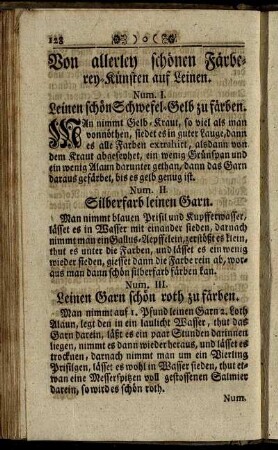 128
Von allerley schönen Färbe-
rey-Künsten auf Leinen.
Num. I.
Leinen schön Schwefel-Gelb zu färben.
MAn nimmt Gelb-Kraut, so viel als man
vonnöthen, siedet es in guter Lauge, dann
es alle Farben extrahirt, alsdann von
dem Kraut abgeseyhet, ein wenig Grünspan und
ein wenig Alaun darunter gethan, dann das Garn
daraus gefärbet, bis es gelb genug ist.
Num. II.
Silberfarb leinen Garn.
Man nimmt blauen Prisil und Kupfferwasser,
lässet es in Wasser mit einander sieden, darnach
nimmt man ein Gallus-Aepffelein, zerstößt es klein,
thut es unter die Farben, und lässet es ein wenig
wieder sieden, giesset dann die Farbe rein ab, wor-
aus man dann schön silberfarb färben kan.
Num. III.
Leinen Garn schön roth zu färben.
Man nimmt auf 1. Pfund leinen Garn 2. Loth
Alaun, legt den in ein laulicht Wasser, thut das
Garn darein, läßt es ein paar Stunden darinnen
liegen, nimmt es dann wieder heraus, und lässet es
trocknen, darnach nimmt man um ein Vierling
Prisilgen, lässet es wohl in Wasser sieden, thut et-
wan eine Messerspitzen voll gestossenen Salmier
darein, so wird es schön roth.
Num.